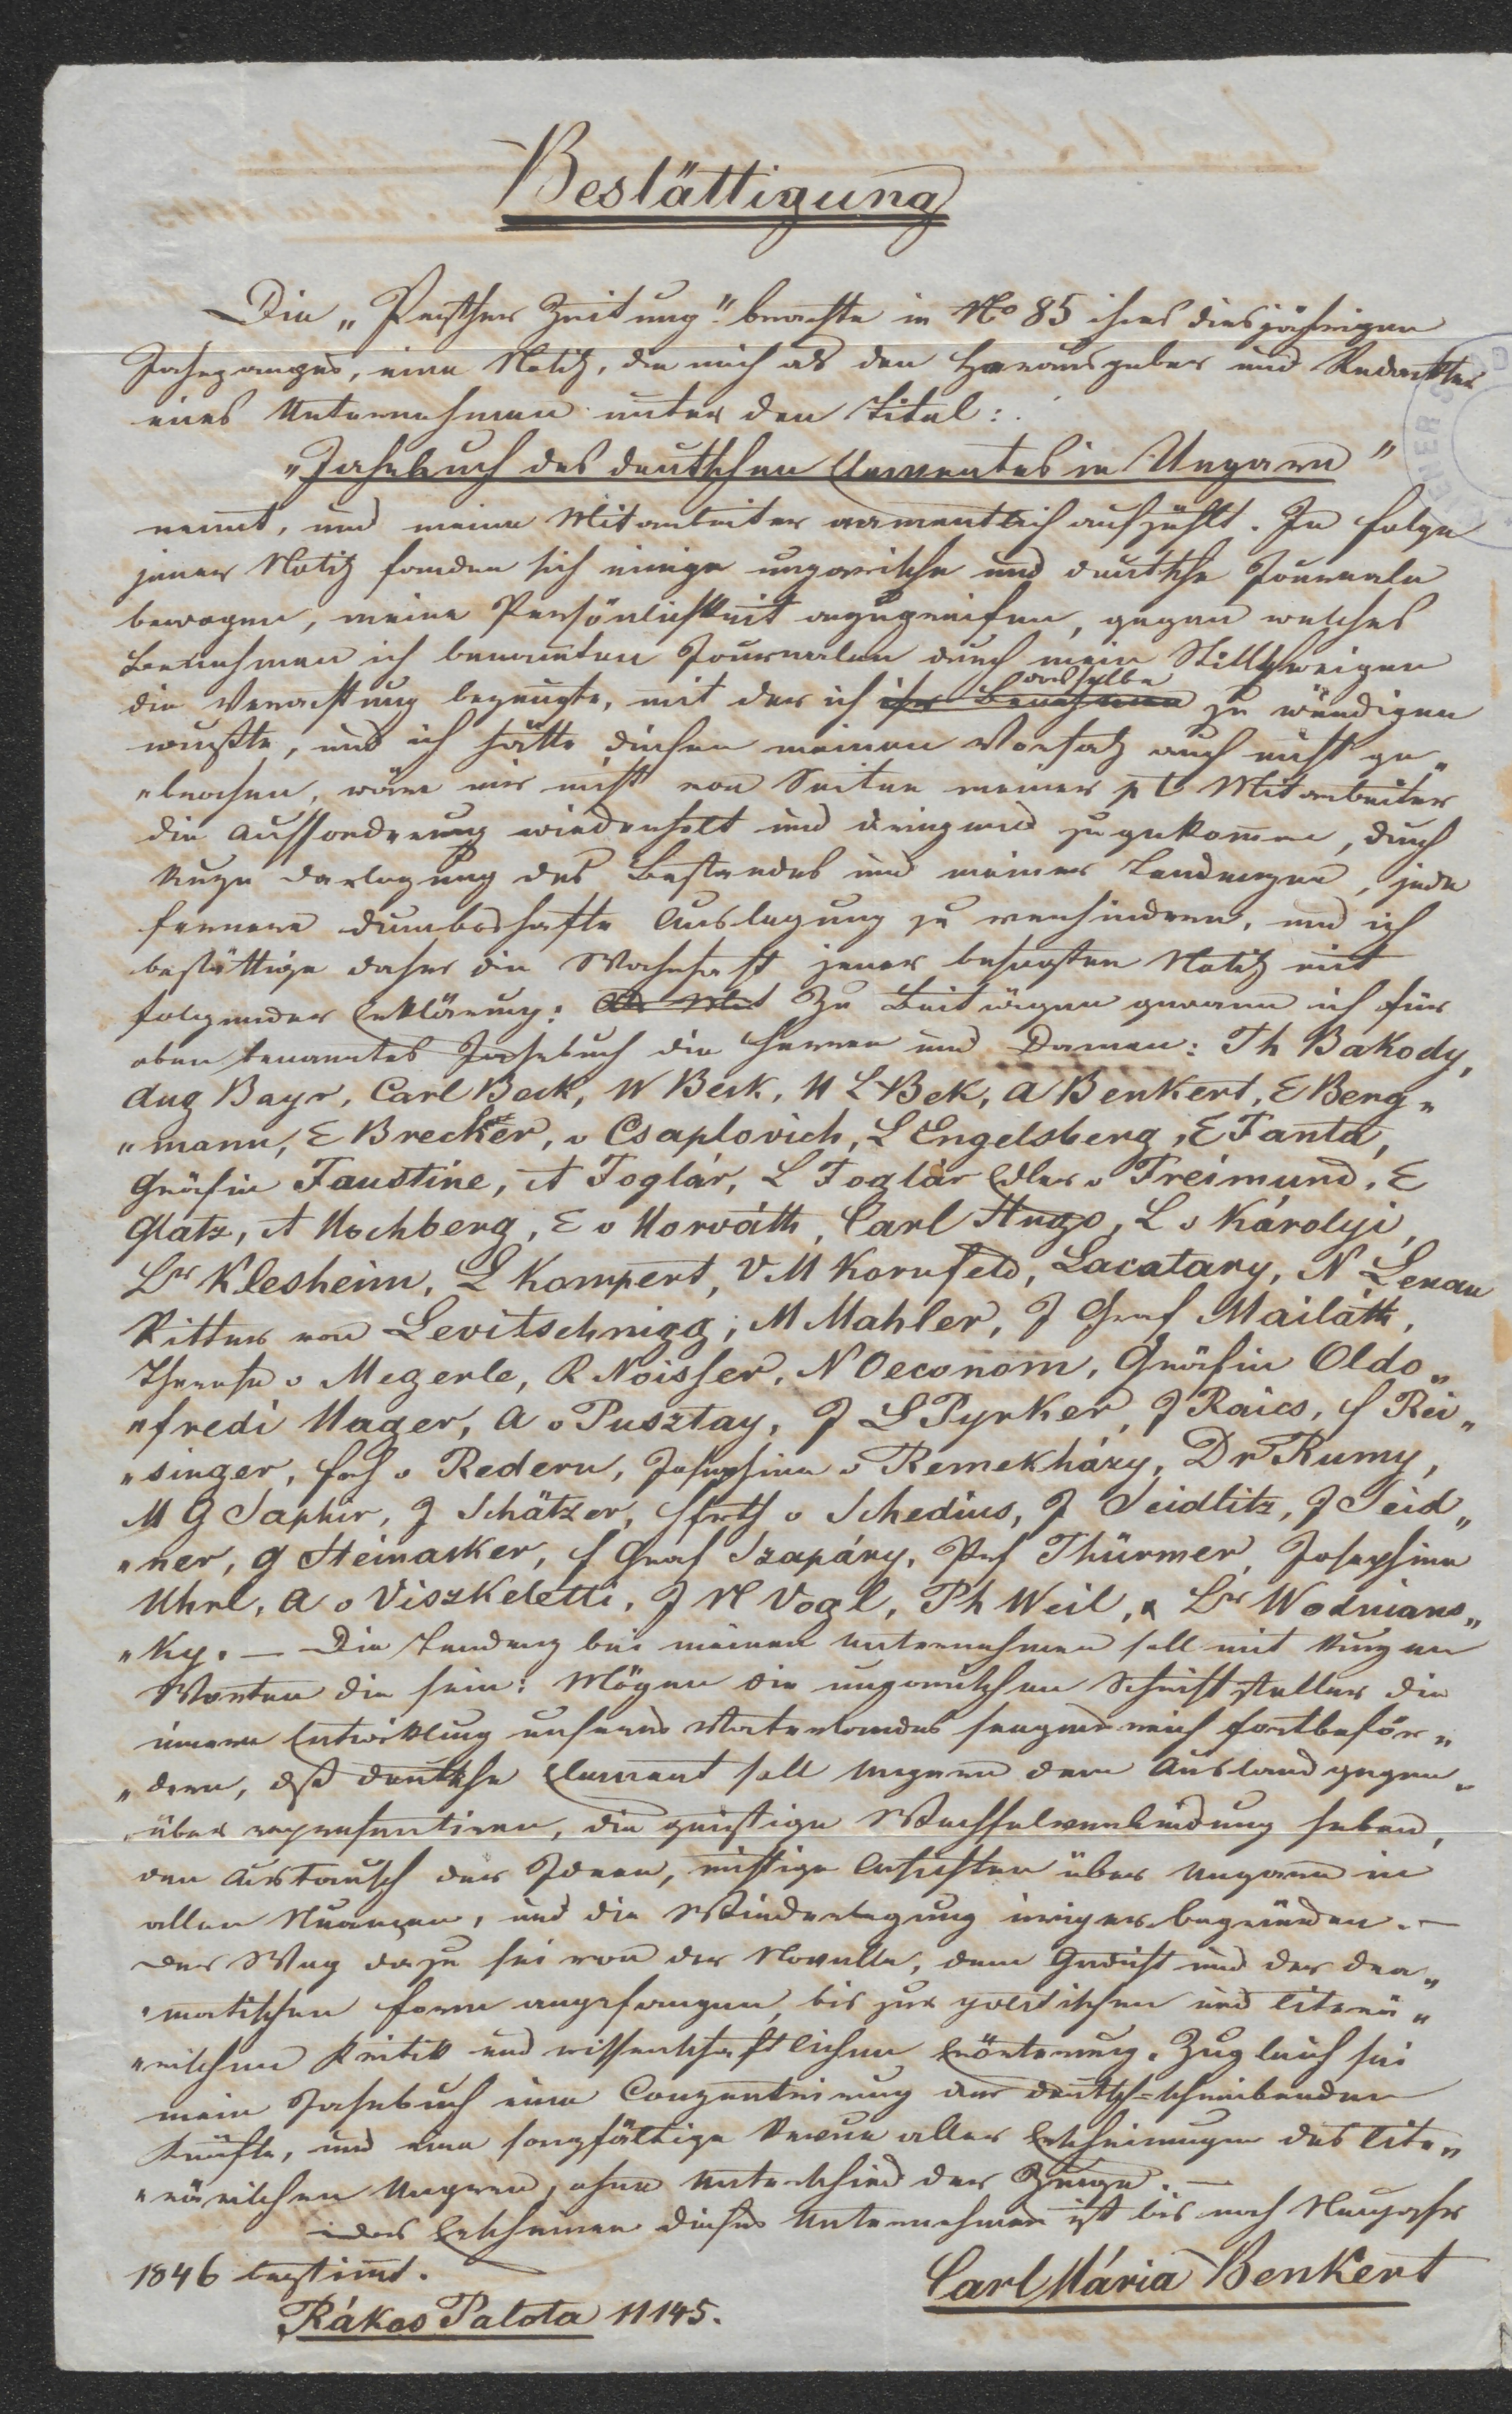 Bestättigung
Die „Pesther Zeitung" brachte in No 85 ihres diesjährigen
Jahrganges, eine Notitz, die mich als den Herausgeber und Redackter
eines Unternehmen unter den Titel:
„Jahrbuch des deutschen Elementes in Ungarn"
nennt, und meine Mitarbeiter namentlich aufzählt. In Folge
jener Notitz fanden sich einige ungarische und deutsche Journale
bewogen, meine Persönlichkeit anzugreifen, gegen welches
Benehmen ich benannten Journalen durch mein Stillschweigen
die Verachtung bezeugte, mit der ich ihr Benehmen dasselbe zu würdigen
wußte, und ich hätte diesen meinen Vorsatz auch nicht ge„
„brochen, wäre mir nicht von Seiten meiner pt Mitarbeiter
die Aufforderung wiederholt und dringend zugekommen, durch
kurze Darlegung des Bestandes und meiner Tendenzen, jede
fernere dumboshafte Auslegung zu verhindern, und ich
bestättige daher die Wahrhaft jener besagten Notitz mit
folgender Erklärung: Als Mit Zu Beiträgen gewann ich für
oben benanntes Jahrbuch die Herren und Damen: Th Bakody,
Aug Bayr, Carl Beck, W Beck, M L Bek, A Benkert, E Berg„
„mann, E Brecker, v Csaplovich, L Engelsberg, E Fanta,
Gräfin Faustine, A Foglár, L Foglár Edler v Freimund, E
Glatz, A Hochberg, E v Horváth, Carl Hugo, L v Károlyi,
Br Klesheim, L Kompert, V M Kornfeld, Lacatary, N Lenau
Ritter von Levitschnigg, M Mahler, J Graf Mailáth,
Therese v Megerle, R Noisser, N Oeconom, Gräfin Oldo„
„fredi Hager, A v Pusztay, J L Pyrker, J Raics, F Rei„
„singer, Frh v Redern, Josephine v Remekházy, Dr Rumy,
M G Saphir, J Schätzer, v Schedius, J Seidlitz, J Seid„
„ner, G Steinacker, F Graf Szapáry, Prf Thürmer, Josephine
Uhrl, A v Viszkeletti, J N Vogl, Ph Weil, & Br Wodnians„
„ky. — Die Tendenz bei meinen Unternehmen soll mit kurzen
Worten die sein: Mögen die ungarischen Schriftsteller die
innere Entwicklung unseres Vaterlandes segensreich fortbeför„
„dern, daß deutsche Element soll Ungarn dem Ausland gegen„
„über representiren, die geistige Wechselverbindung heben,
den Austausch der Ideen, richtige Ansichten über Ungarn in
allen Nuancen, und die Wiederlegung irriger begründen. —
Der Weg dazu sei von der Novelle, dem Gedicht und der dra„
„matischen Form angefangen, bis zur politischen und literä„
„rischen Kritik und wissenschaftlichen Erörterung. Zugleich sei
mein Jahrbuch eine Conzentrirung der deutsch=schreibenden
Kräfte, und eine sorgfältige Revue aller Erscheinungen des lite„
„rärischen Ungarn, ohne Unterschied der Zunge. —
Das Erscheinen dieses Unternehmen ist bis nach Neujahr
1846 bestimmt.
Carl Mária Benkert
Rákos Palota 11145.